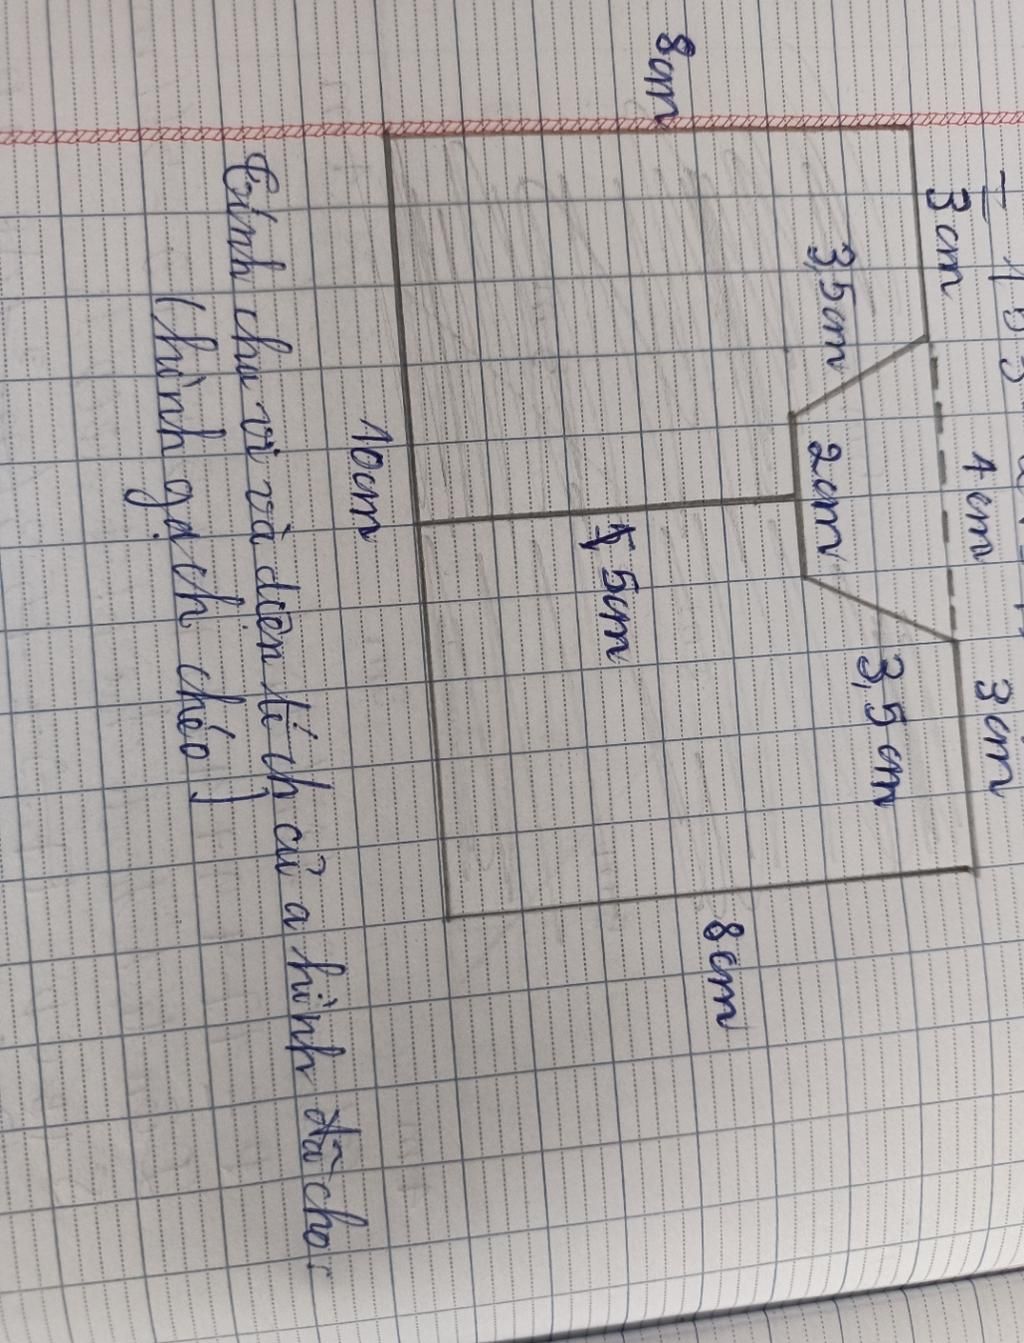 3cm 4cm 3cm
8cm
3,5cm
2cm
3,5cm
5cm
8cm
10cm
Tính chu vi và diện tích củ a hình đã cho:
(hình gạch chéo)